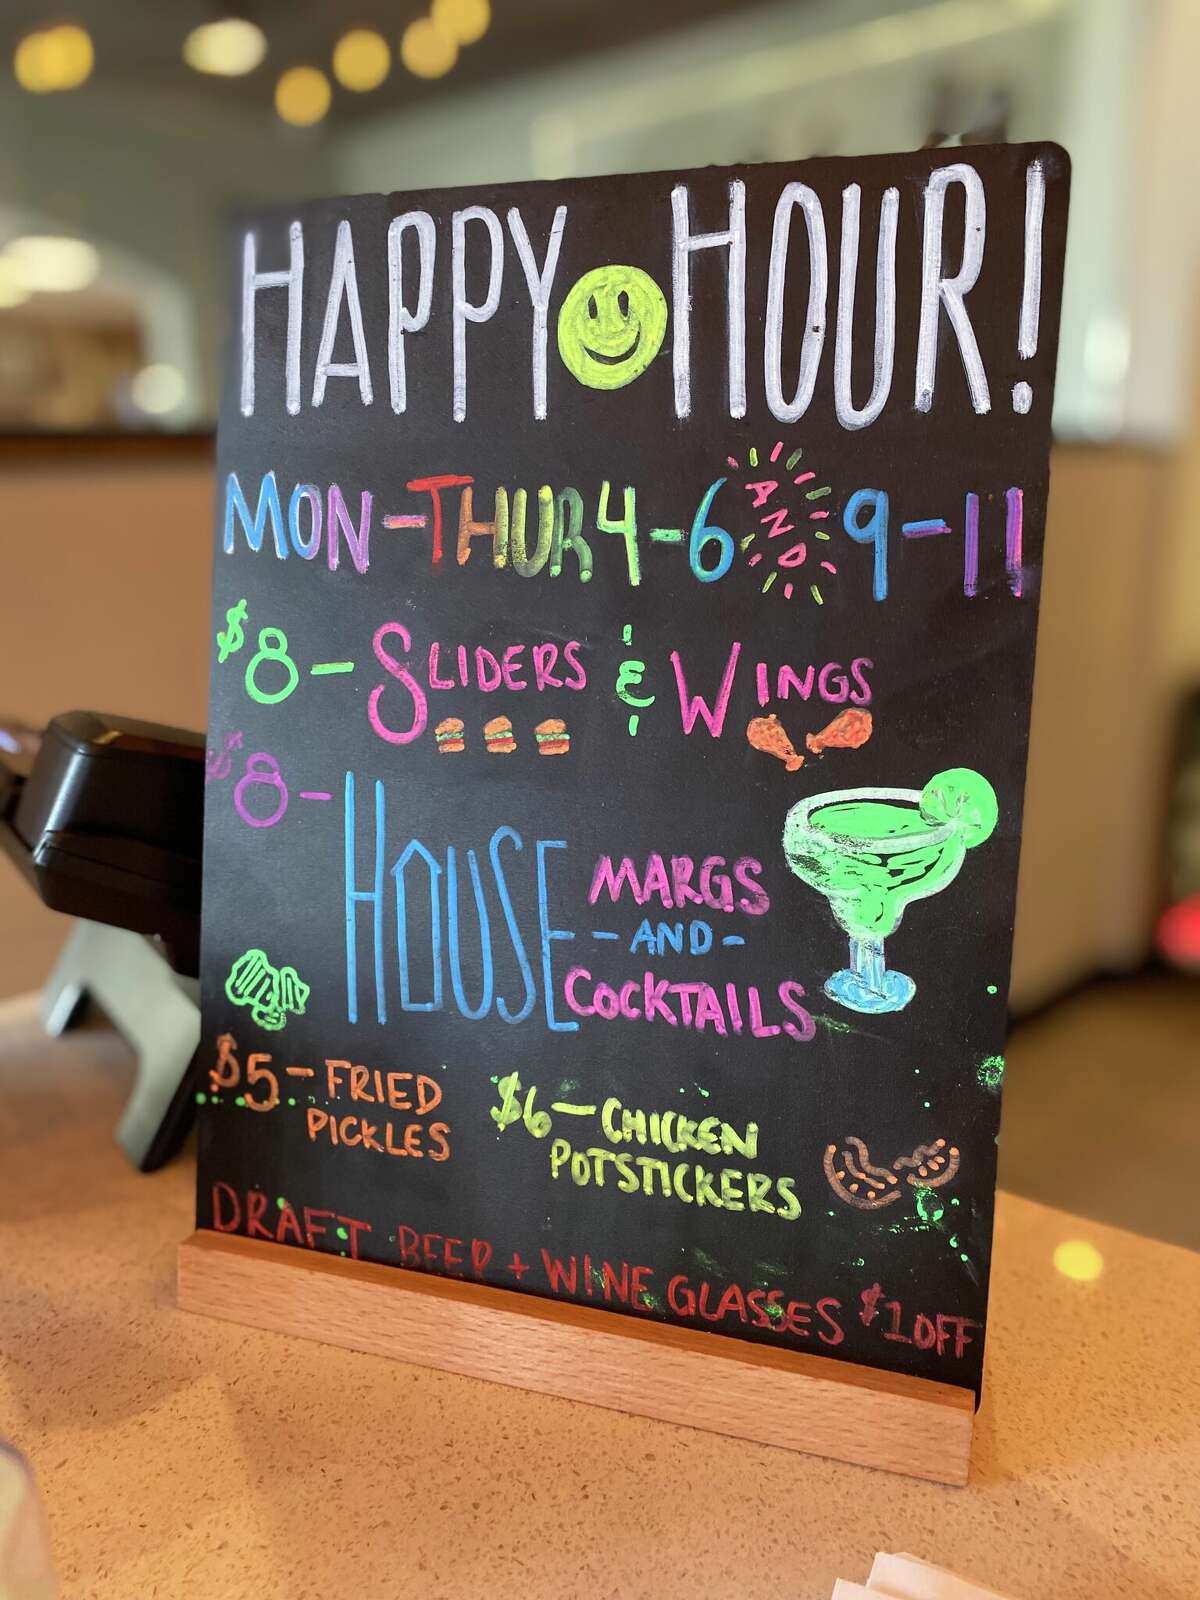 HAPPY HOUR!
MON-THUR 4-6 AND 9-11
$8- SLIDERS & WINGS
$8- HOUSE MARGS
-AND-
COCKTAILS
$5-FRIED
PICKLES
$6-CHICKEN
POTSTICKERS
DRAFT BEER + WINE GLASSES $1 OFF